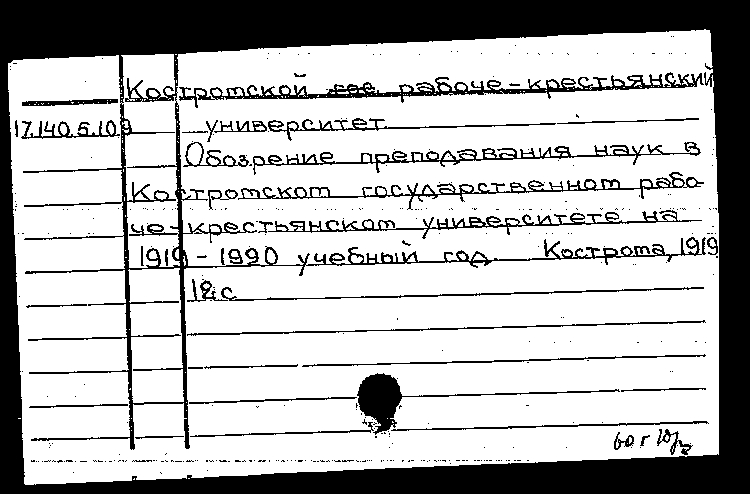 Костромской гос. рабоче-крестьянский
17.140.5.109 университет
Обозрение преподавания наук в
Костромском государственном рабо-
че-крестьянском университете на
1919-1990 учебный год. Кострома, 1919
12 с
60 г